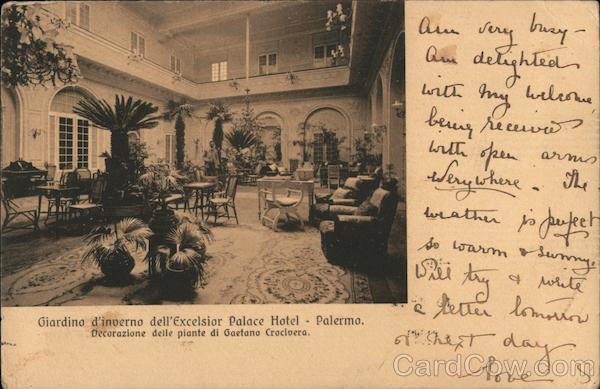 Am very busy -
Am delighted
with my welcome
being received
with open arms
everywhere. The
weather is perfect
so warm & sunny.
Will try & write
a letter tomorrow
or next day
Love
Giardino d'inverno dell'Excelsior Palace Hotel - Palermo.
Decorazione delle piante di Gaetano Crocivera.
CardCow.com